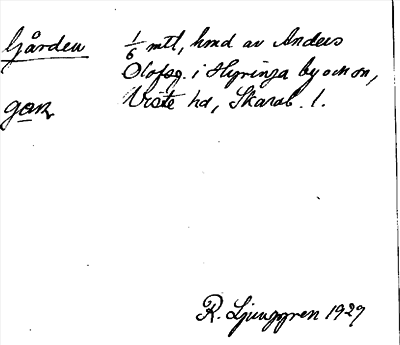 Gården 1/6 mtl, hmd av Anders
Olofsg. i Hyringa by och sn,
gaɽn Viste hd, Skarab. l.
R. Ljunggren 1929